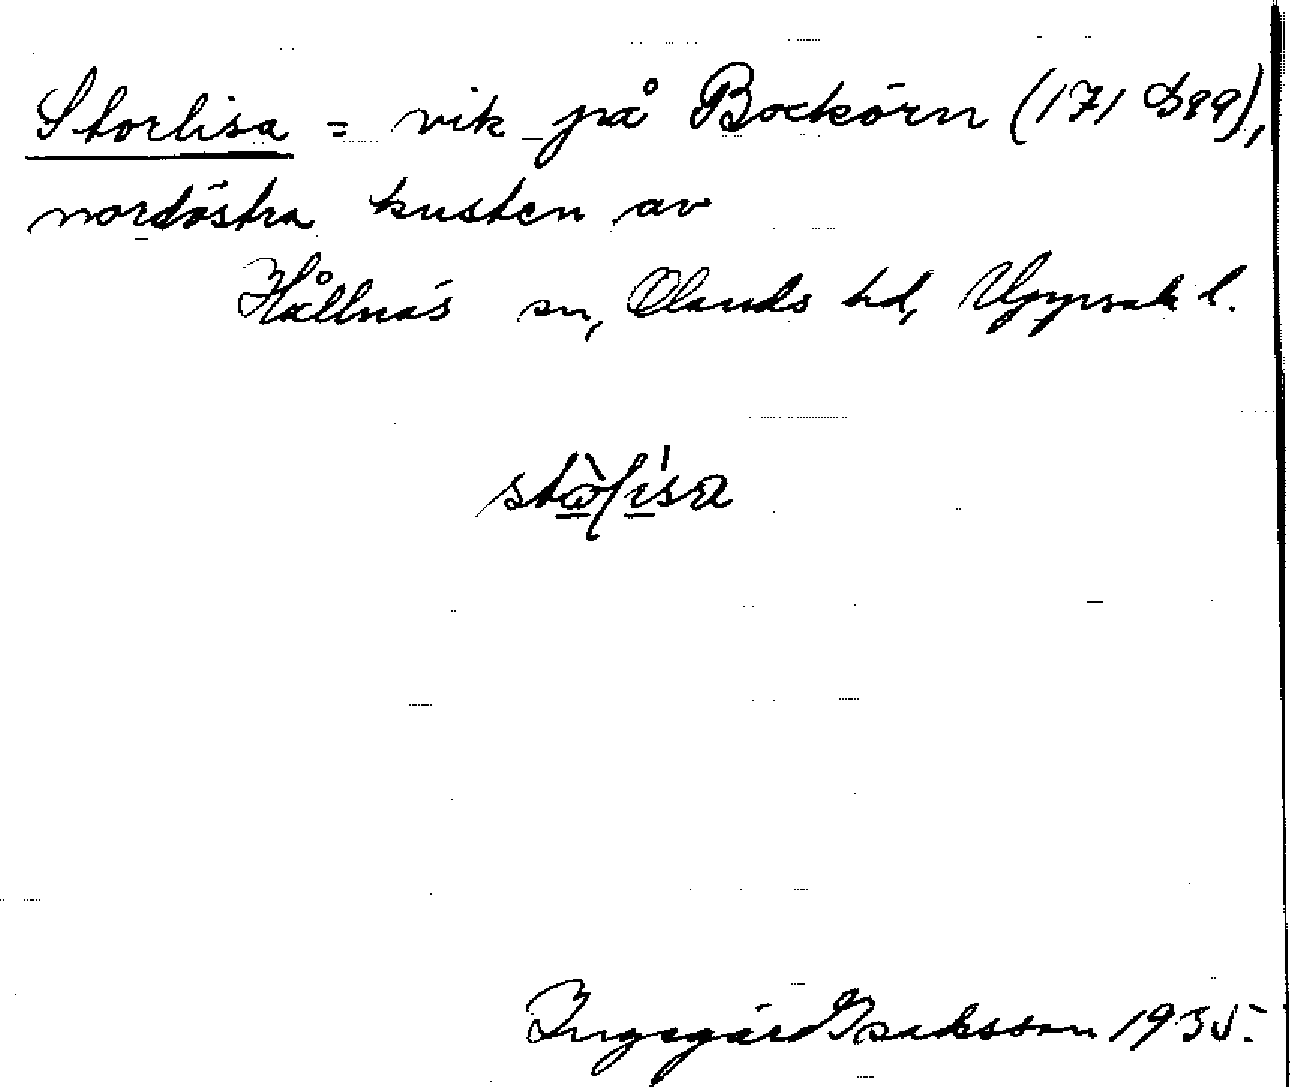 Storlisa = vik på Bockörn (171 D89),
nordöstra kusten av
Hållnäs sn, Olands hd, Uppsala l.
Ingegärd Isaksson 1935.